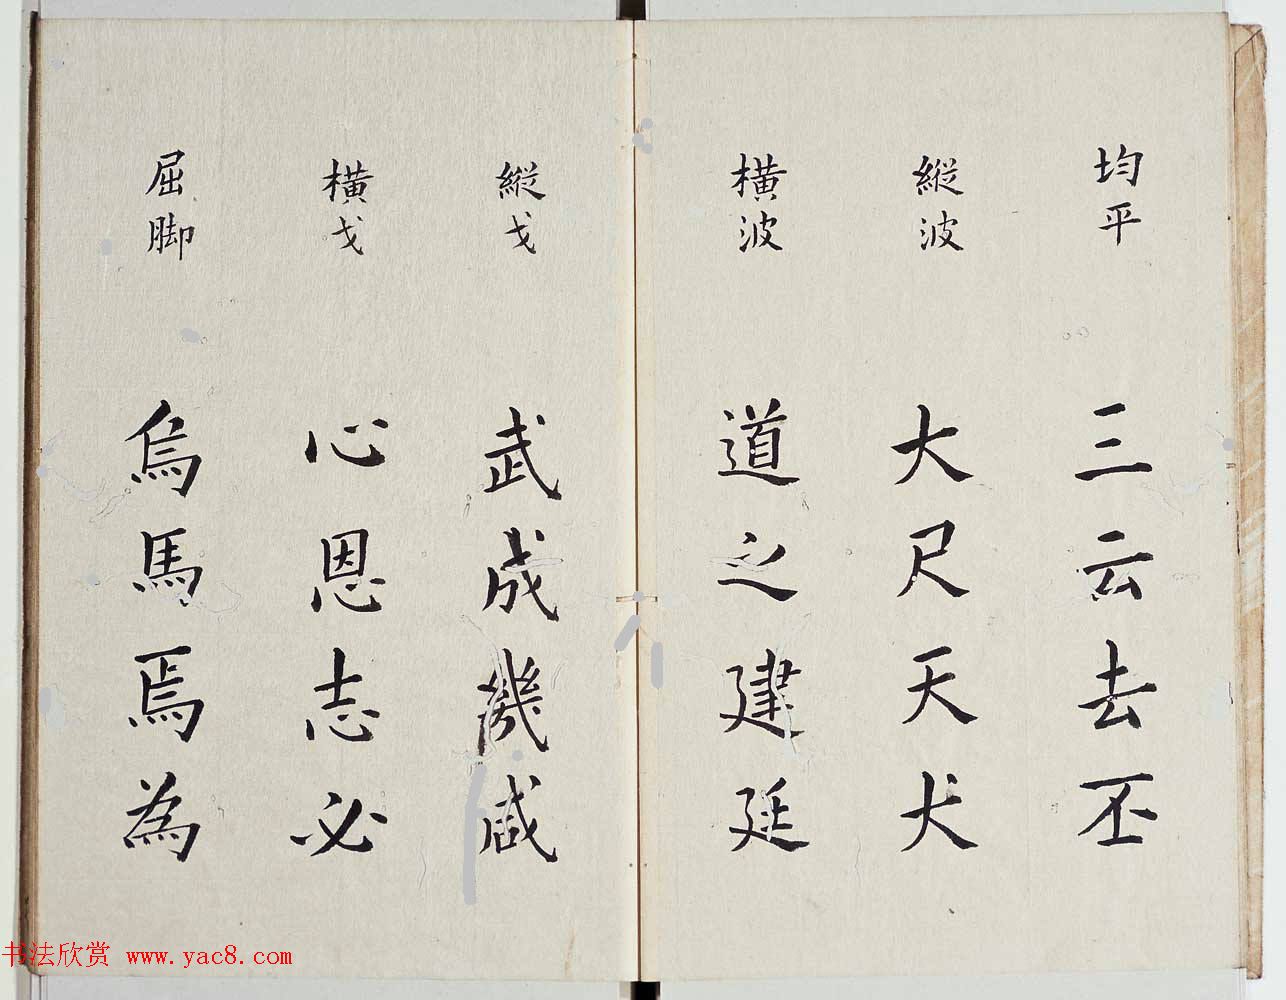 均平
三云去丕
縱波
大尺天犬
橫波
道之建廷
縱戈
武成幾咸
橫戈
心恩志必
屈脚
烏馬焉為
书法欣赏 www.yac8.com